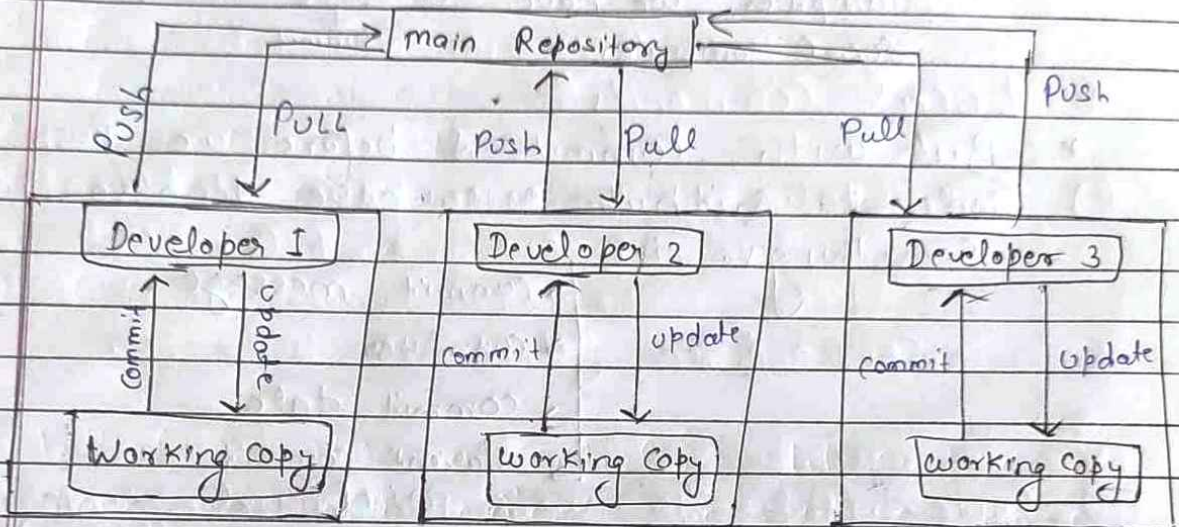 main Repository
Push PULL Push Pull Pull Push
Developer I Developer 2 Developer 3
Commit update commit update commit update
Working Copy working Copy working Copy